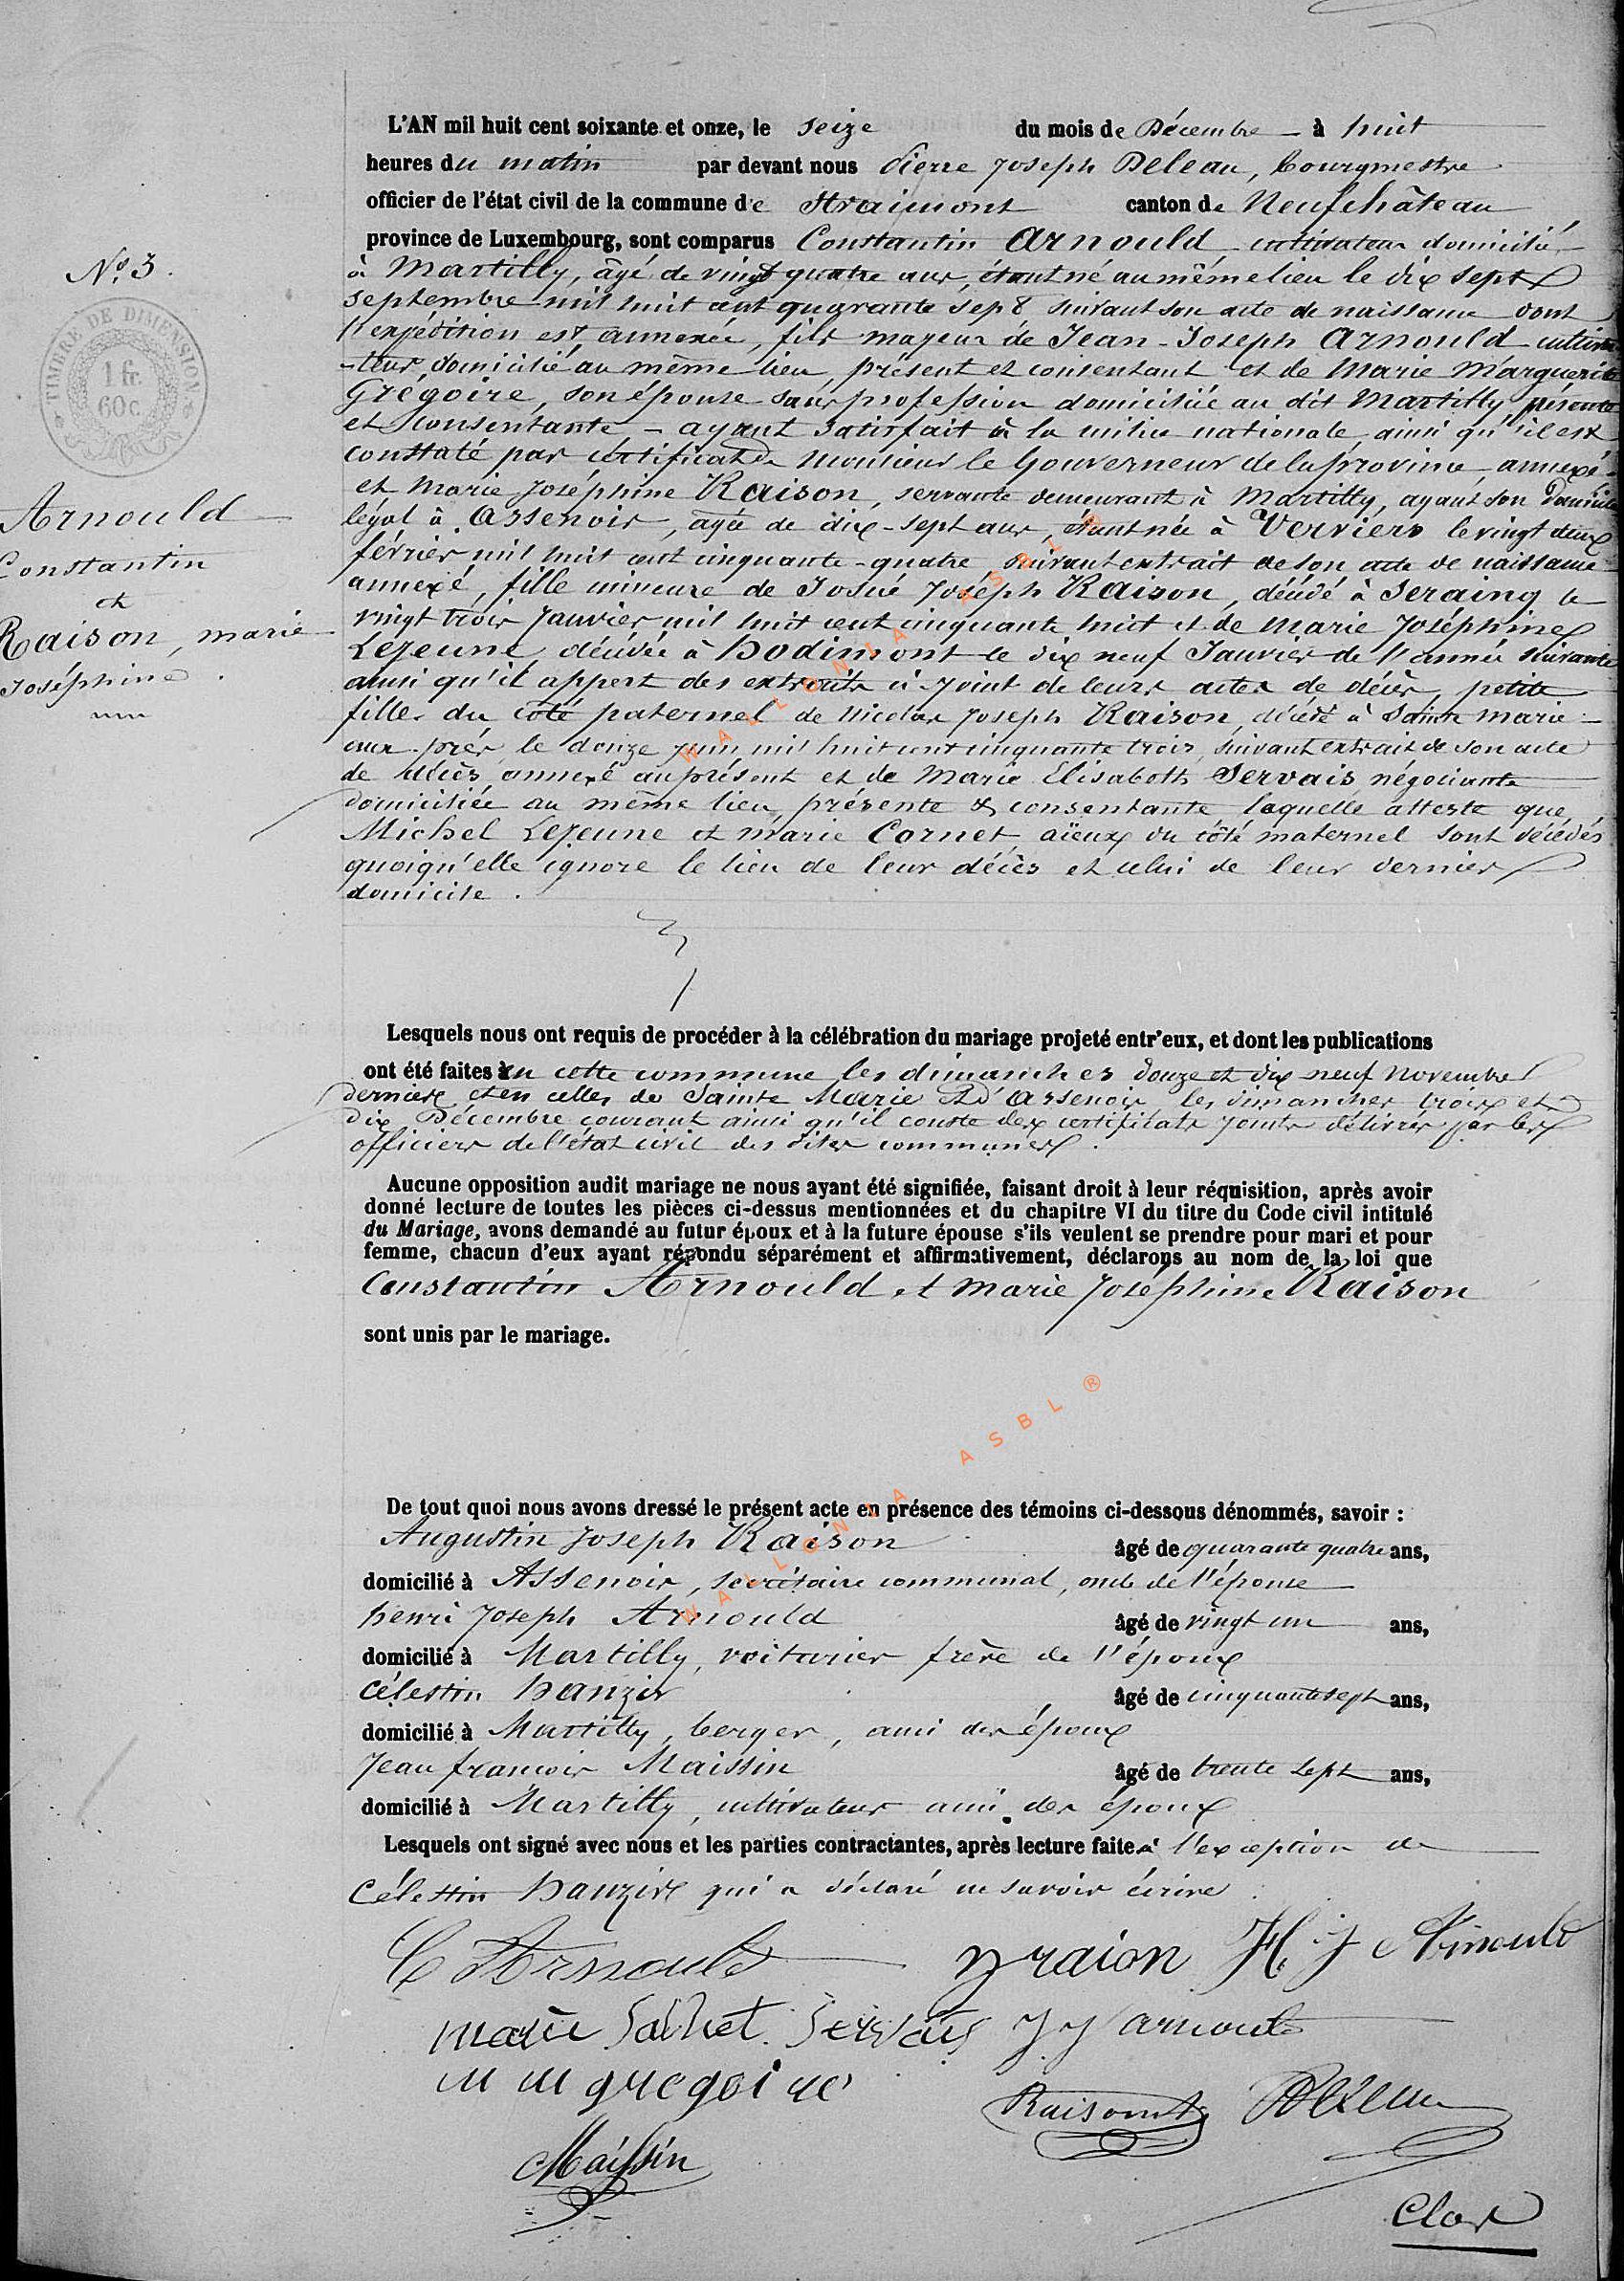 L'AN mil huit cent soixante et onze, le seize du mois de Décembre à huit
heures du matin par devant nous Pierre Joseph Deleau, bourgmestre
officier de l'état civil de la commune de Straimont canton de Neufchâteau
province de Luxembourg, sont comparus Constantin Arnould cultivateur domicilié
No 3.
à Martilly, âgé de vingt quatre ans, étant né au même lieu le dix sept
septembre mil huit cent quarante sept suivant son acte de naissance dont
l'expédition est annexée, fils majeur de Jean-Joseph Arnould cultiva
TIMBRE DE DIMENSION
1 fr. 60c
-teur, domicilié au même lieu, présent et consentant et de Marie Marguerite
Grégoire, son épouse sans profession domiciliée au dit Martilly, présente
et consentante - ayant satisfait à la milice nationale, ainsi qu'il est
constaté par certificat de Monsieur le Gouverneur de la province, annexé
et Marie Joséphine Raison, servante demeurant à Martilly, ayant son domicile
Arnould
Constantin
et
Raison, marie
Joséphine
légal à Assenois, agée de dix-sept ans, étant née à Verviers le vingt deux
février mil huit cent cinquante-quatre suivant extrait de son acte de naissance
annexé, fille mineure de Josué Joseph Raison, décédé à Seraing le
vingt trois Janvier mil huit cent cinquante huit et de Marie Joséphine
Lejeune, décédée à Hodimont le dix neuf Janvier de l'année suivante
ainsi qu'il appert des extraits ci-joint de leurs actes de décès, petite
fille du côté paternel de Nicolas Joseph Raison, décédé à Sainte Marie
le douze Juin mil huit cent cinquante trois, suivant extrait de son acte
de décès annexé au présent et de Marie Elisabeth Servais négociante
domiciliée au même lieu, présente & consentante laquelle atteste que
Michel Lejeune et marie Cornet, aïeux du côté maternel sont décédés
quoiqu'elle ignore le lieu de leur décès et celui de leur dernier
domicile.
Lesquels nous ont requis de procéder à la célébration du mariage projeté entr'eux, et dont les publications
ont été faites en cette commune les dimanches douze et dix neuf novembre
derniers et en celles de Sainte Marie et d'Assenois les dimanches trois et
dix Décembre courant ainsi qu'il conste des certificats joints délivrés par les
officiers de l'état civil des dites communes.
Aucune opposition audit mariage ne nous ayant été signifiée, faisant droit à leur réquisition, après avoir
donné lecture de toutes les pièces ci-dessus mentionnées et du chapitre VI du titre du Code civil intitulé
du Mariage, avons demandé au futur époux et à la future épouse s'ils veulent se prendre pour mari et pour
femme, chacun d'eux ayant répondu séparément et affirmativement, déclarons au nom de la loi que
Constantin Arnould et Marie Joséphine Raison
sont unis par le mariage.
De tout quoi nous avons dressé le présent acte en présence des témoins ci-dessous dénommés, savoir :
Augustin Joseph Raison âgé de quarante quatre ans,
domicilié à Assenois, secrétaire communal, oncle de l'épouse
henri Joseph Arnould âgé de vingt un ans,
domicilié à Martilly, voiturier frère de l'époux
Célestin Hanzir âgé de cinquante sept ans,
domicilié à Martilly, berger, ami des époux
Jean françois Maissin âgé de trente sept ans,
domicilié à Martilly, cultivateur ami des époux
Lesquels ont signé avec nous et les parties contractantes, après lecture faite à l'exception de
Célestin Hanzir qui a déclaré ne savoir écrire.
C Arnould raison H. J Arnould
marie Servais J J arnould
m m gregoire
Raison Deleau
Maissin
Clos
WALLONIA ASBL
WALLONIA ASBL ®